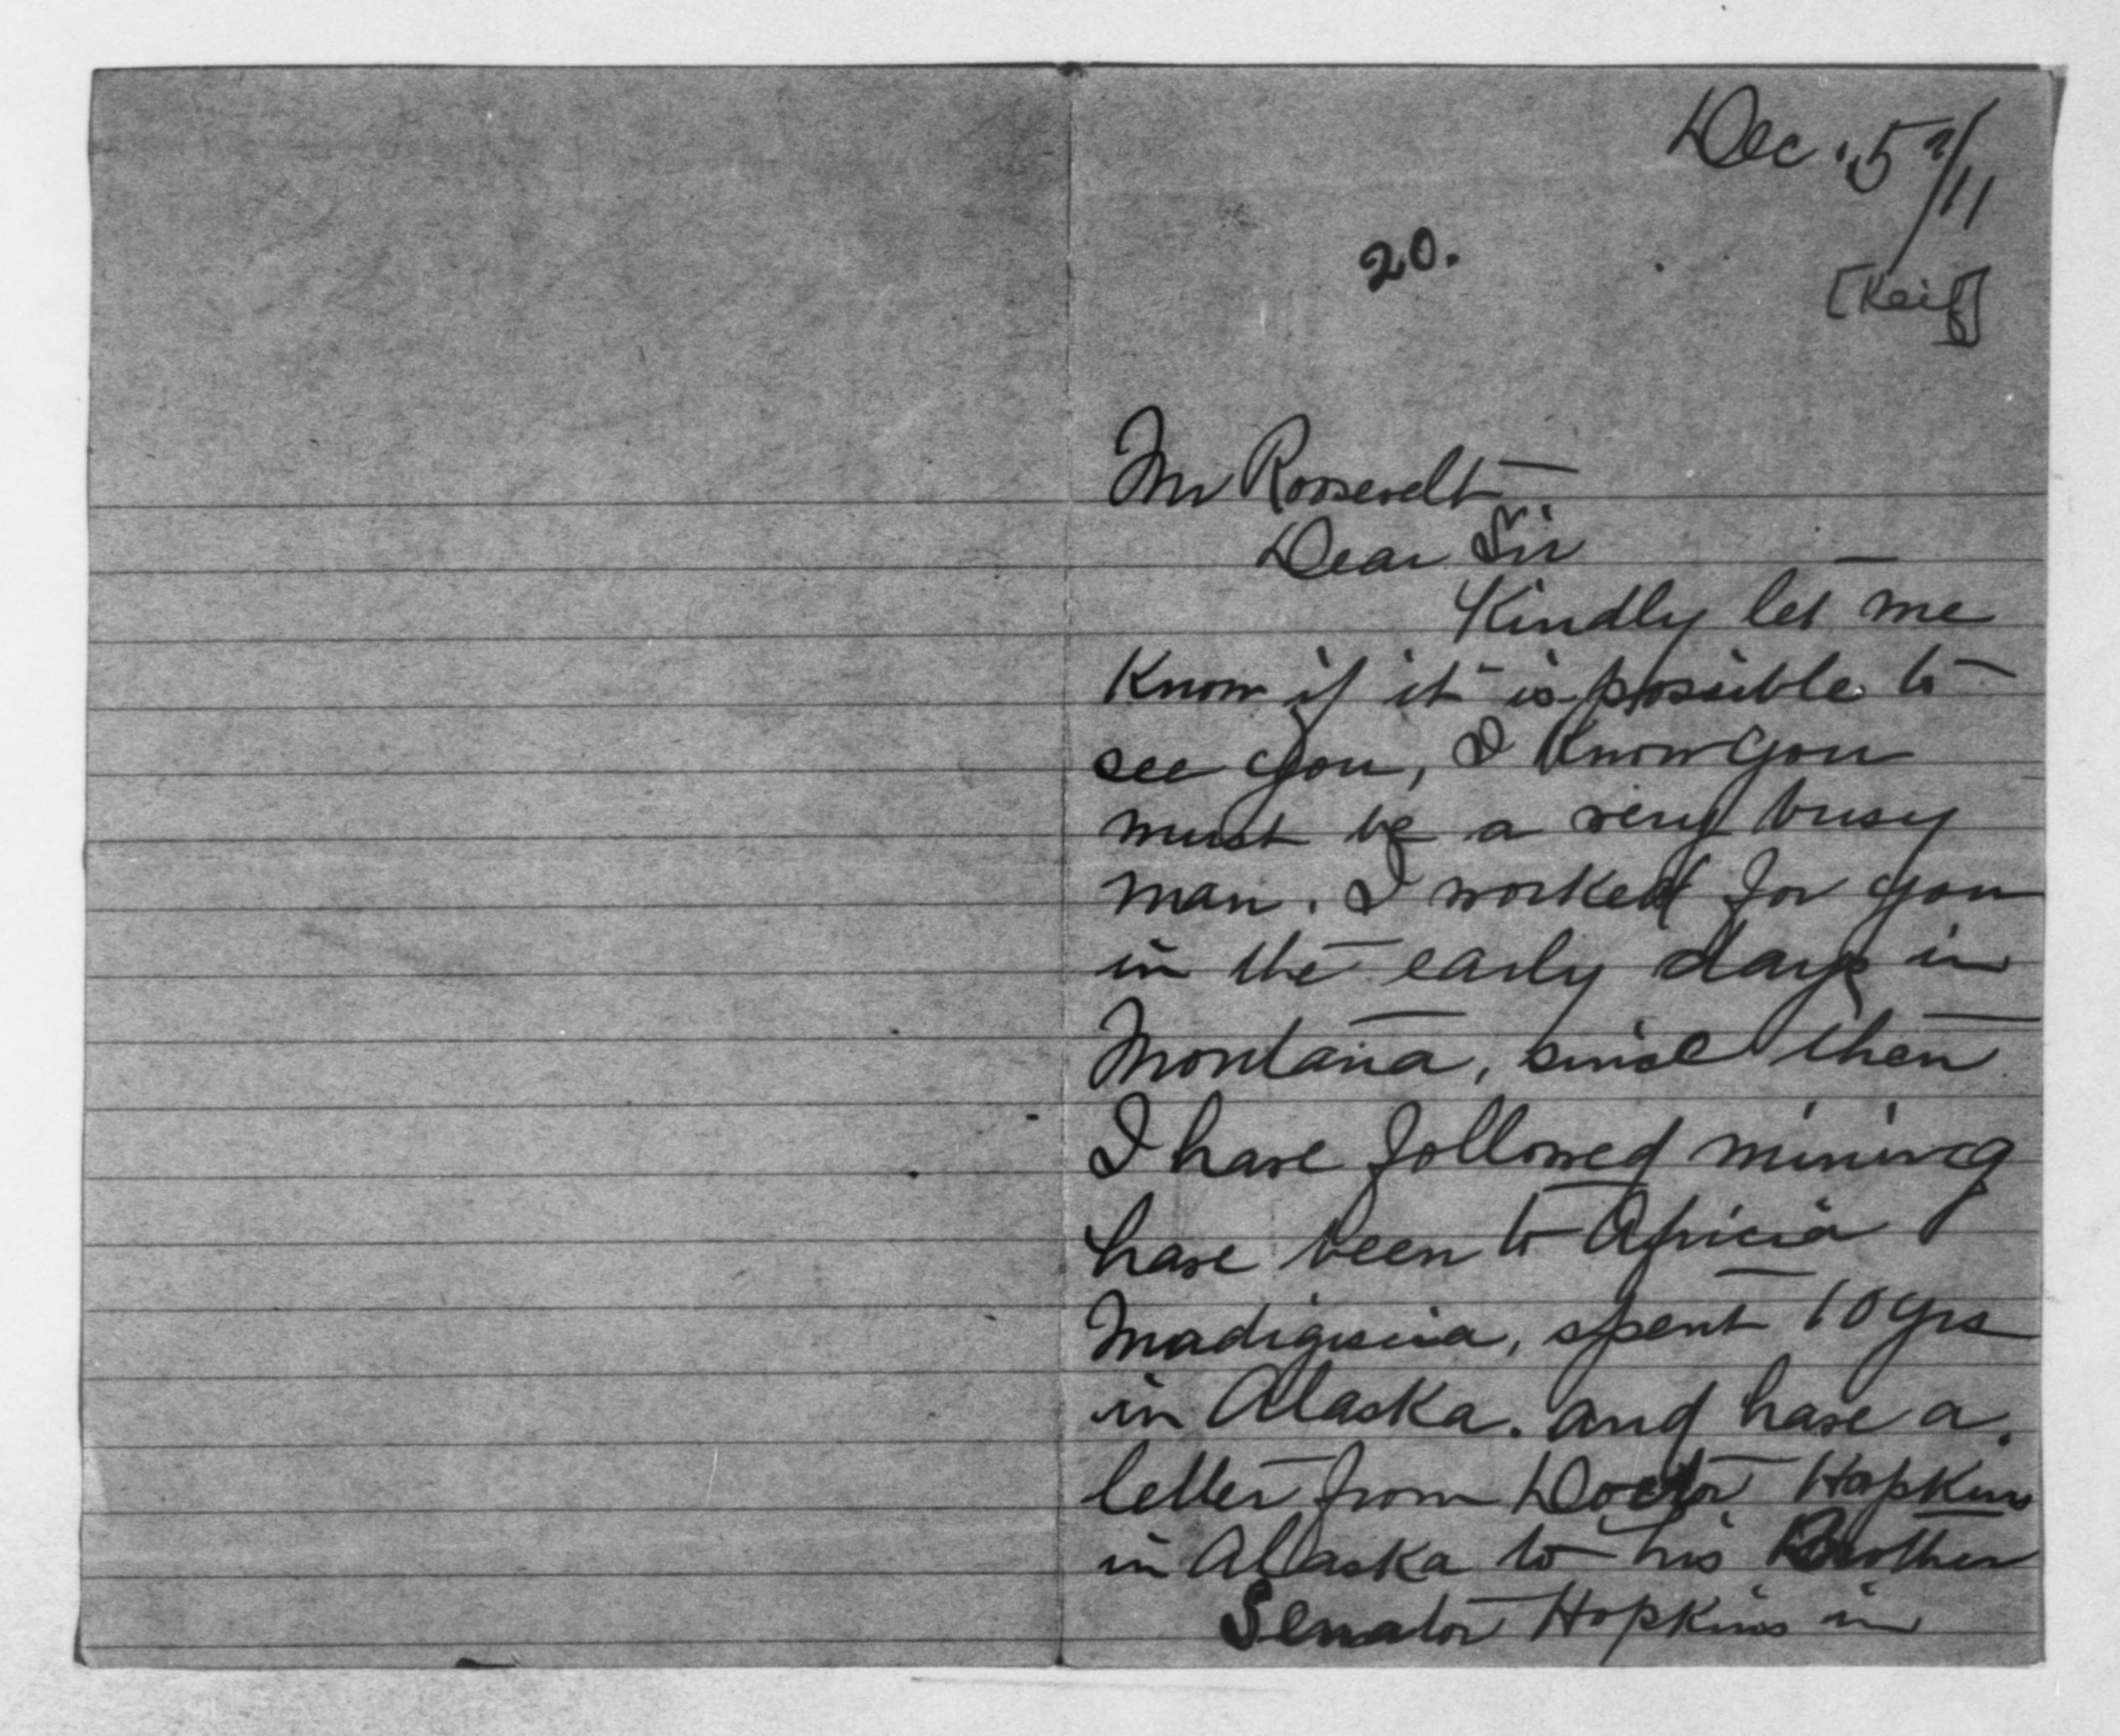 Dec. 5th/11
20.
[Keif]
Mr Roosevelt
Dear Sir
Kindly let me
Know if it is possible to
see you, I Know you
must be a very busy
man. I worked for you
in the early days in
Montana, sinse then
I have followed mining
have been to Africia
Madigisica, spent 10 yrs
in Alaska. and have a
letter from Doctor Hopkins
in Alaska to his Brother
Senator Hopkins in